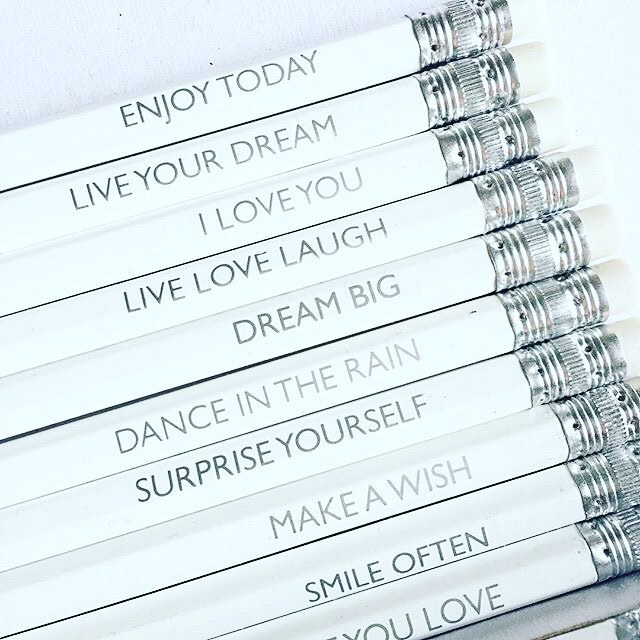 ENJOY TODAY
LIVE YOUR DREAM
I LOVE YOU
LIVE LOVE LAUGH
DREAM BIG
DANCE IN THE RAIN
SURPRISE YOURSELF
MAKE A WISH
SMILE OFTEN
YOU LOVE